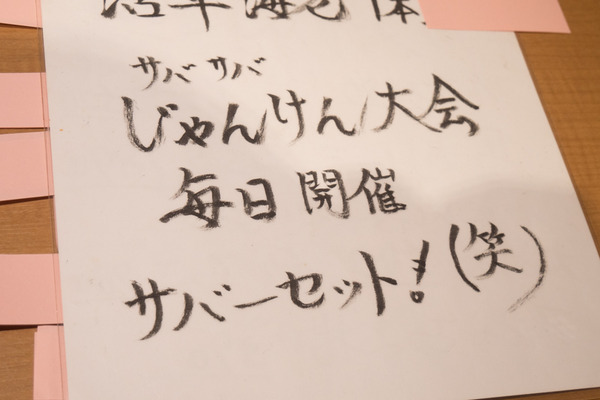 サバサバ
じゃんけん大会
毎日開催
サバーセット!(笑)